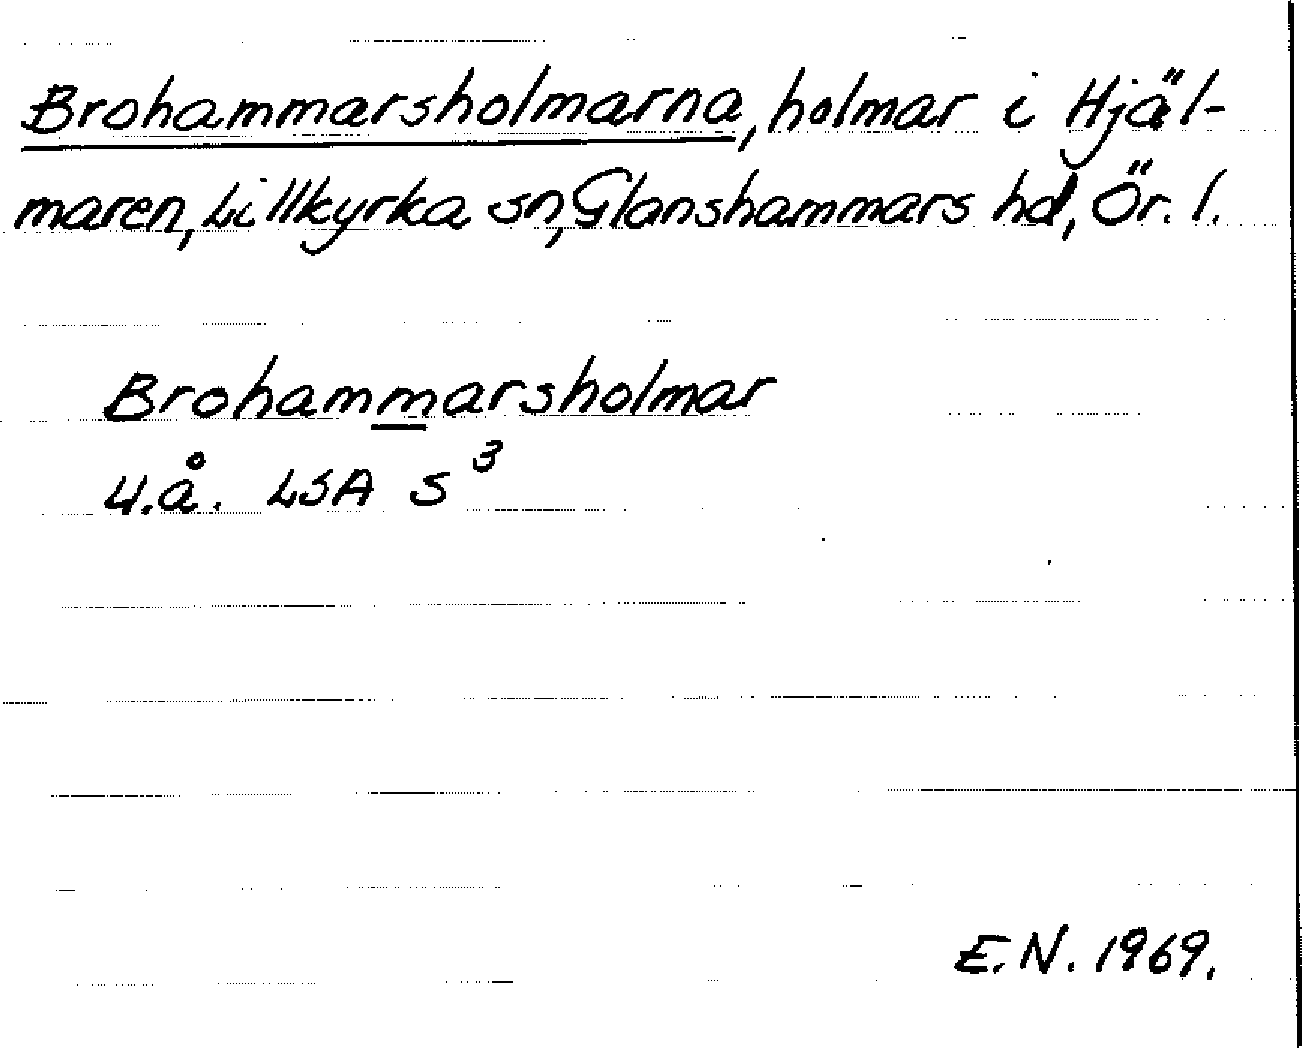 Brohammarsholmarna, holmar i Hjäl-
maren, Lillkyrka sn, Glanshammars hd, Ör. l.
Brohammarsholmar
U.å. LSA S³
E.N. 1969.